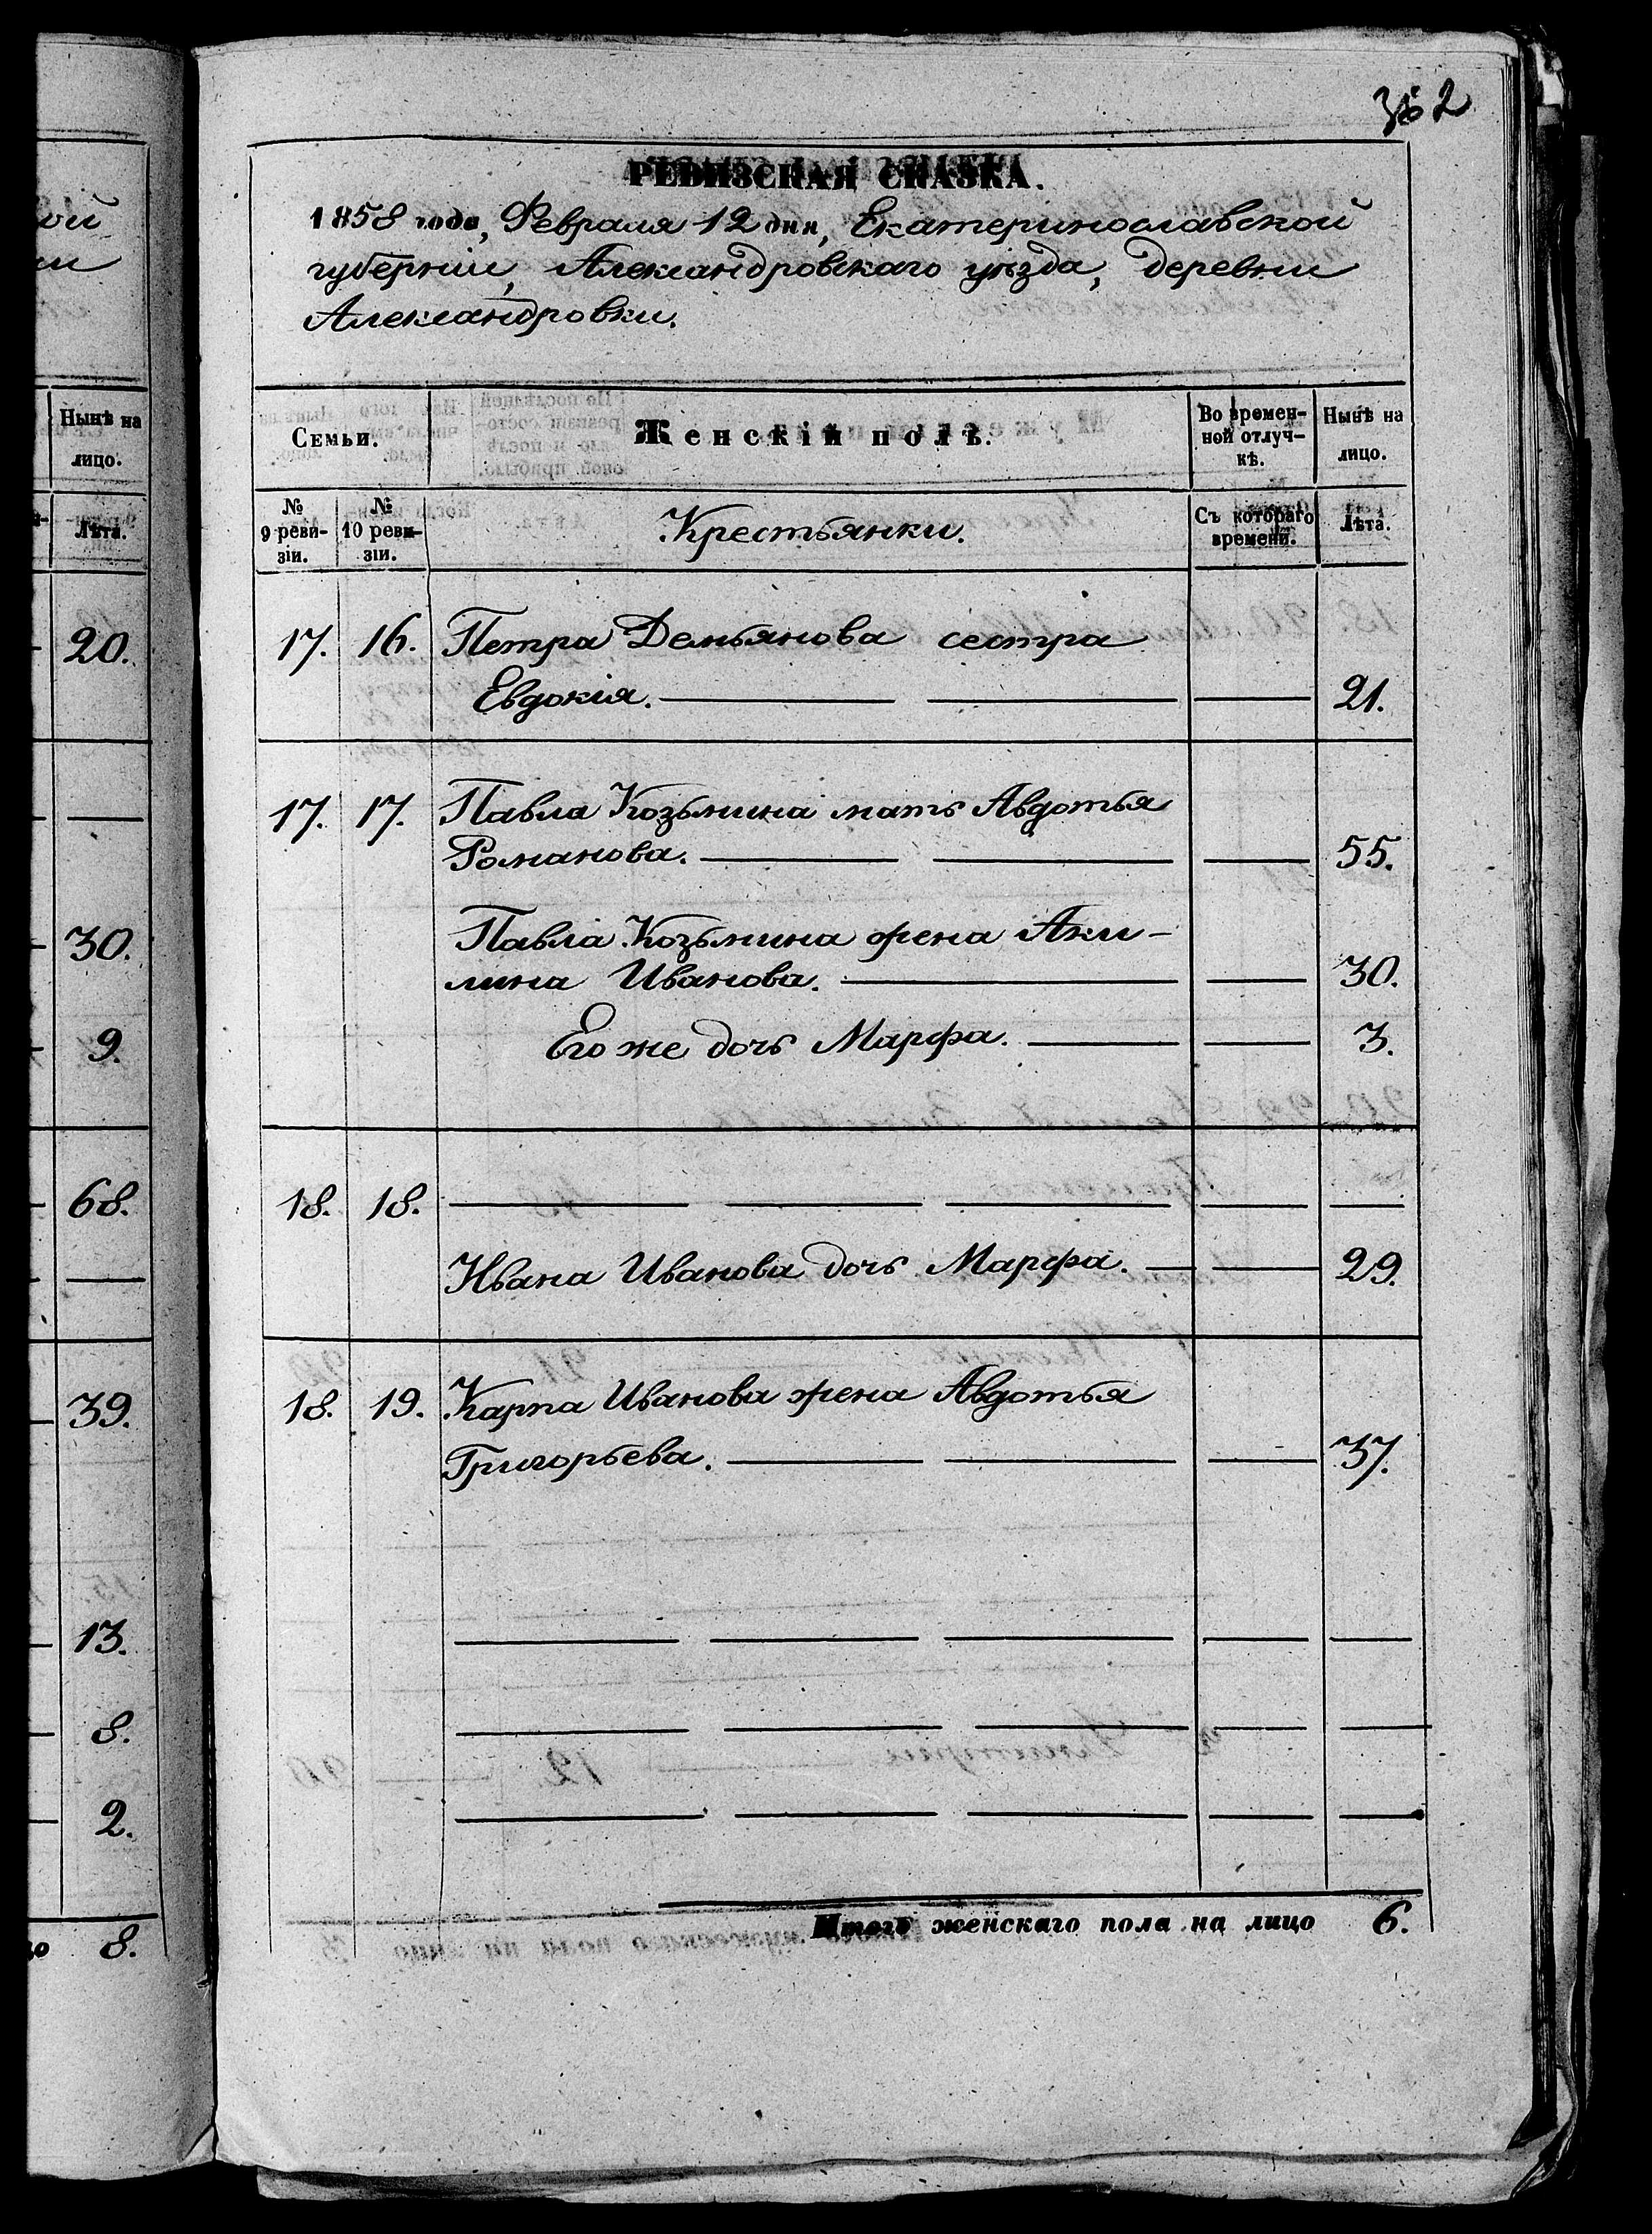 362
РЕВИЗСКАЯ СКАЗКА.
1858 года, Февраля 12 дня, Екатеринославской
губерніи, Александровскаго уѣзда, деревни
Александровки.
Нынѣ на
лицо.
Лѣта.
20.
30.
9.
68.
39.
13.
8.
2.
8.
Семьи.
Женскій полъ.
Во времен-
ной отлуч-
кѣ.
Нынѣ на
лицо.
№
9 реви-
зіи.
№
10 реви-
зіи.
Крестьянки.
Съ котораго
времени.
Лѣта.
17. 16. Петра Демьянова сестра
Евдокія. 21.
17. 17. Павла Козьмина мать Авдотья
Романова. 55.
Павла Козьмина жена Аки-
лина Иванова. 30.
Его же дочь Марфа. 3.
18. 18.
Ивана Иванова дочь Марфа. 29.
18. 19. Карпа Иванова жена Авдотья
Григорьева. 37.
Итого женскаго пола на лицо 6.